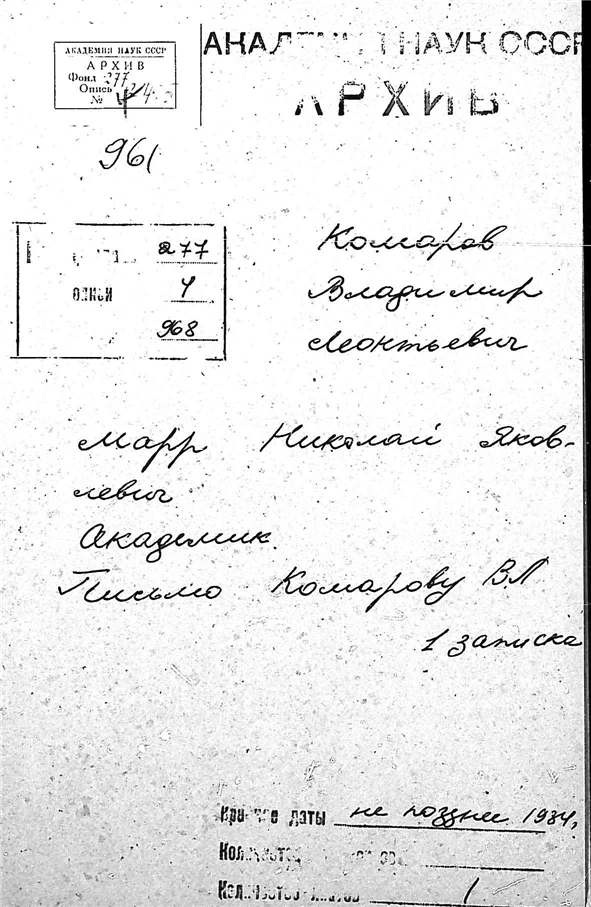 АКАДЕМИЯ НАУК СССР
АРХИВ
Фонд 277
Опись 4
№
АКАДЕМИЯ НАУК СССР
АРХИВ
961
277
описи 4
968
Комаров
Владимир
Леонтьевич
Марр Николай Яков-
левич
Академик.
Письмо Комарову ВЛ
1 записка
Крайние даты не позднее 1934г.
Количество
Количество листов 1